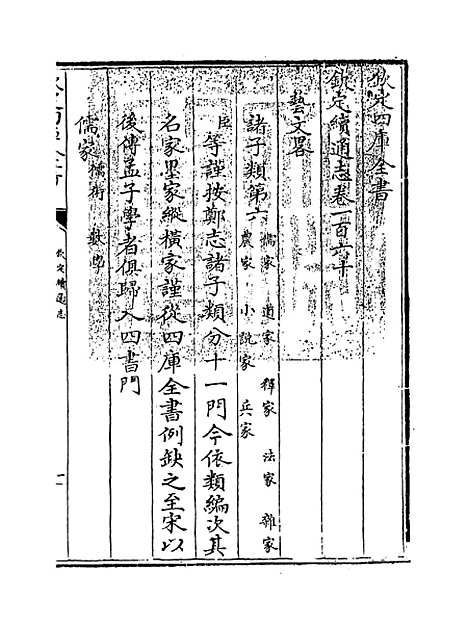 欽定四庫全書
欽定續通志卷一百六十
藝文畧
諸子類第六 儒家 道家 釋家 法家 雜家
農家 小說家 兵家
臣等謹按鄭志諸子類分十一門今依類編次其
名家墨家縱橫家謹從四庫全書例缺之至宋以
後傳孟子學者俱歸入四書門
儒家 儒術
欽定續通志